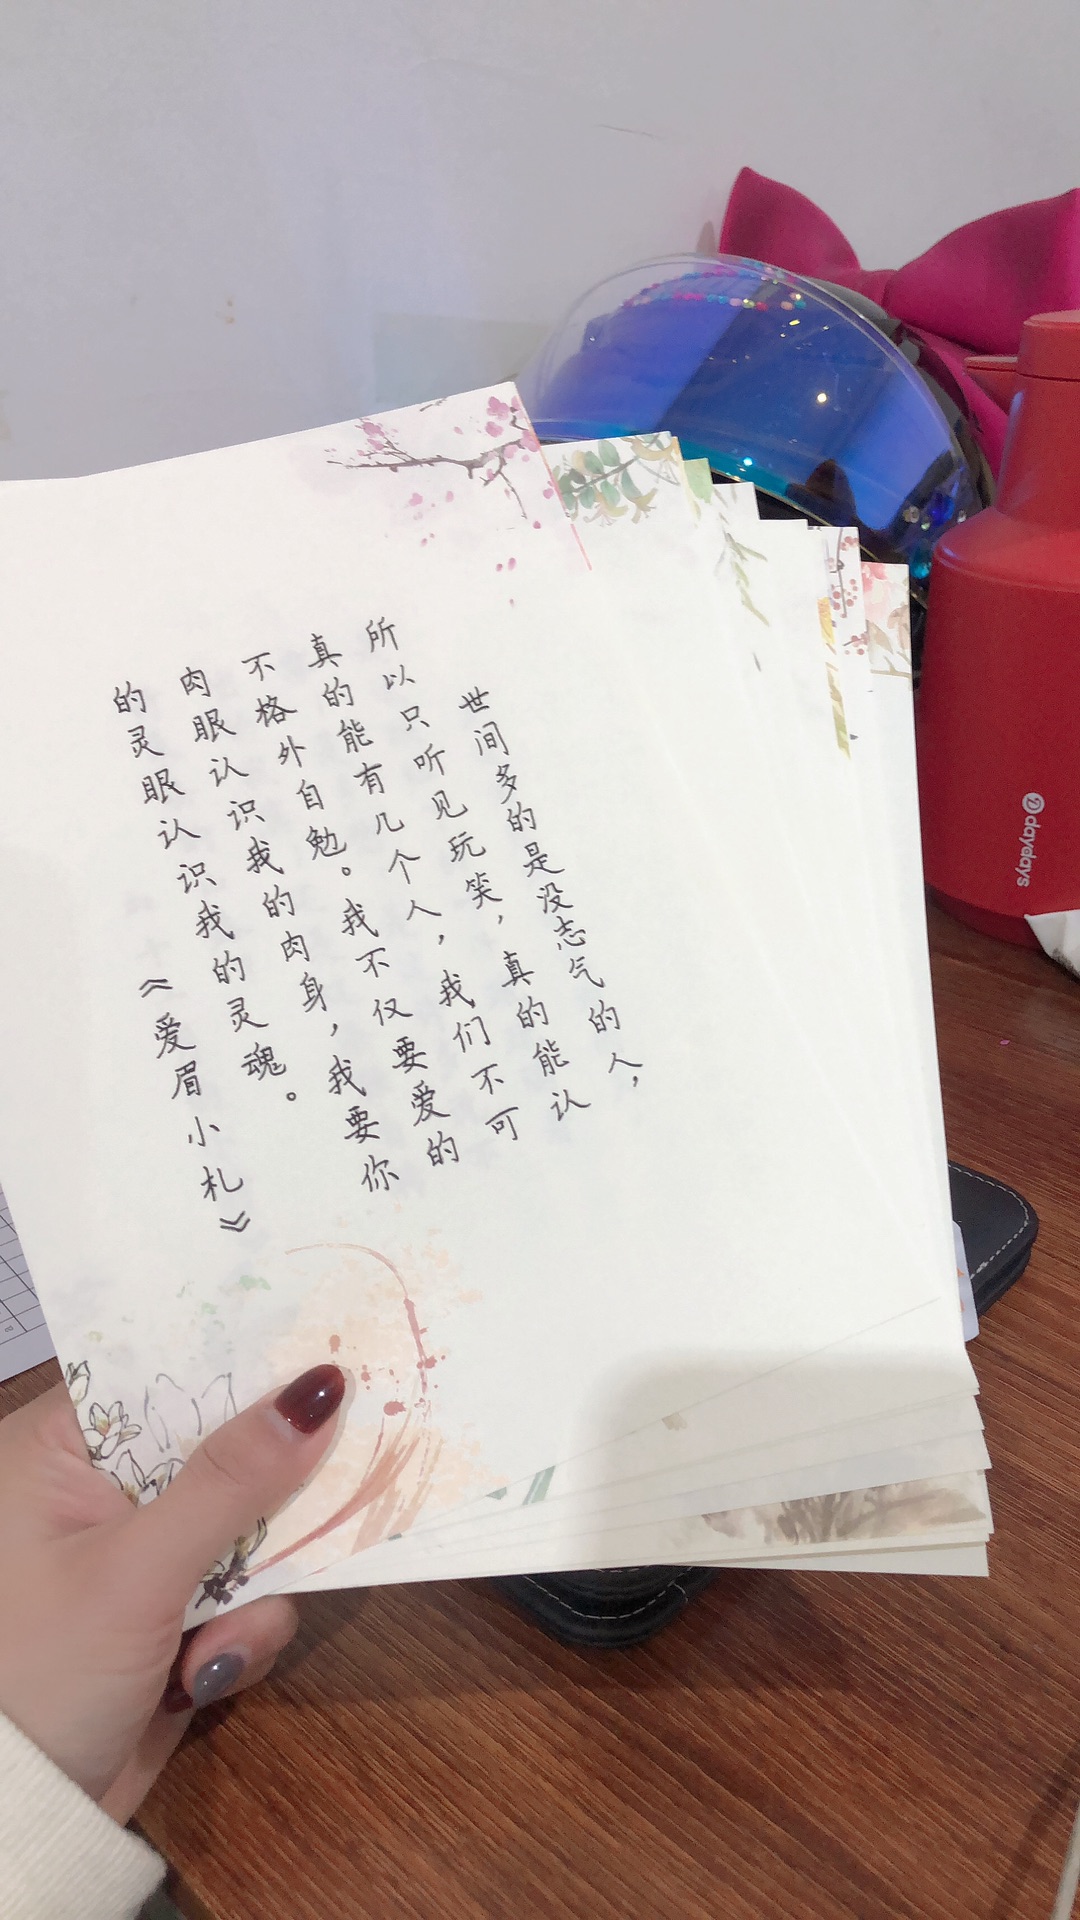 世间多的是没志气的人，
所以只听见玩笑，真的能认
真的能有几个人，我们不可
不格外自勉。我不仅要爱的
肉眼认识我的肉身，我要你
的灵眼认识我的灵魂。
《爱眉小札》
daydays